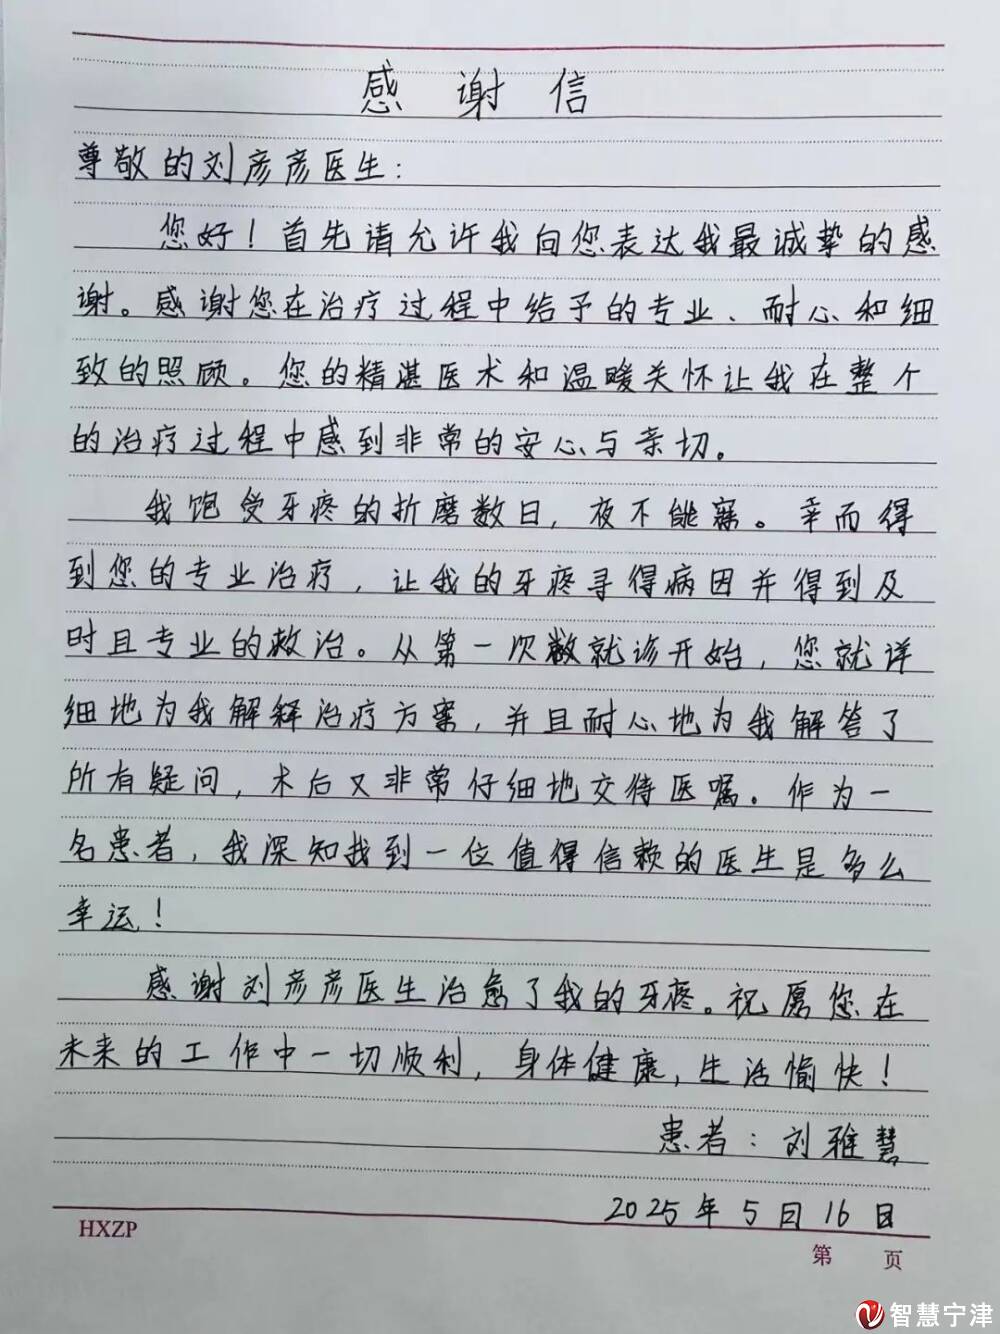 感谢信
尊敬的刘彦彦医生：
您好！首先请允许我向您表达我最诚挚的感
谢。感谢您在治疗过程中给予的专业、耐心和细
致的照顾。您的精湛医术和温暖关怀让我在整个
的治疗过程中感到非常的安心与亲切。
我饱受牙疼的折磨数日，夜不能寐。幸而得
到您的专业治疗，让我的牙疼寻得病因并得到及
时且专业的救治。从第一次就诊开始，您就详
细地为我解释治疗方案，并且耐心地为我解答了
所有疑问，术后又非常仔细地交待医嘱。作为一
名患者，我深知找到一位值得信赖的医生是多么
幸运！
感谢刘彦彦医生治愈了我的牙疼。祝愿您在
未来的工作中一切顺利，身体健康，生活愉快！
患者：刘雅慧
2025年5月16日
HXZP
第 页
智慧宁津